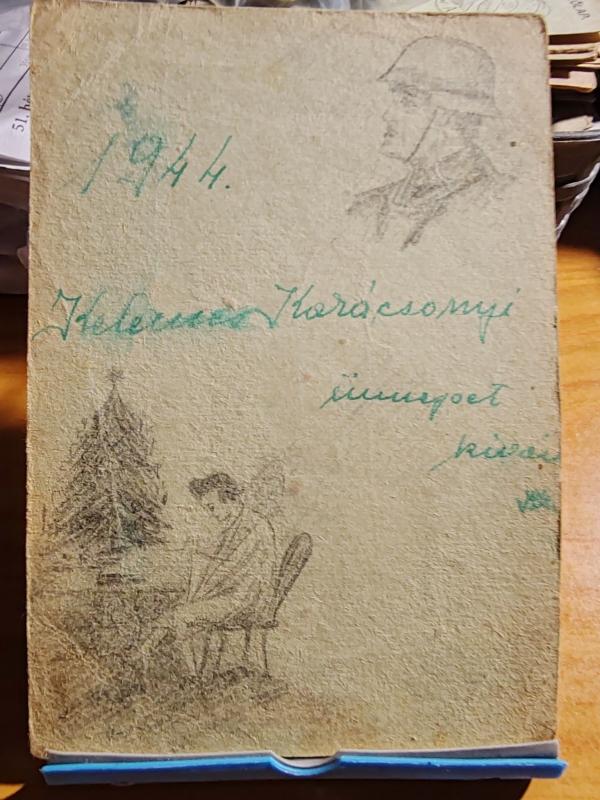 1944.
Kelemes Karácsonyi
ünnepet
kiván
51. hí